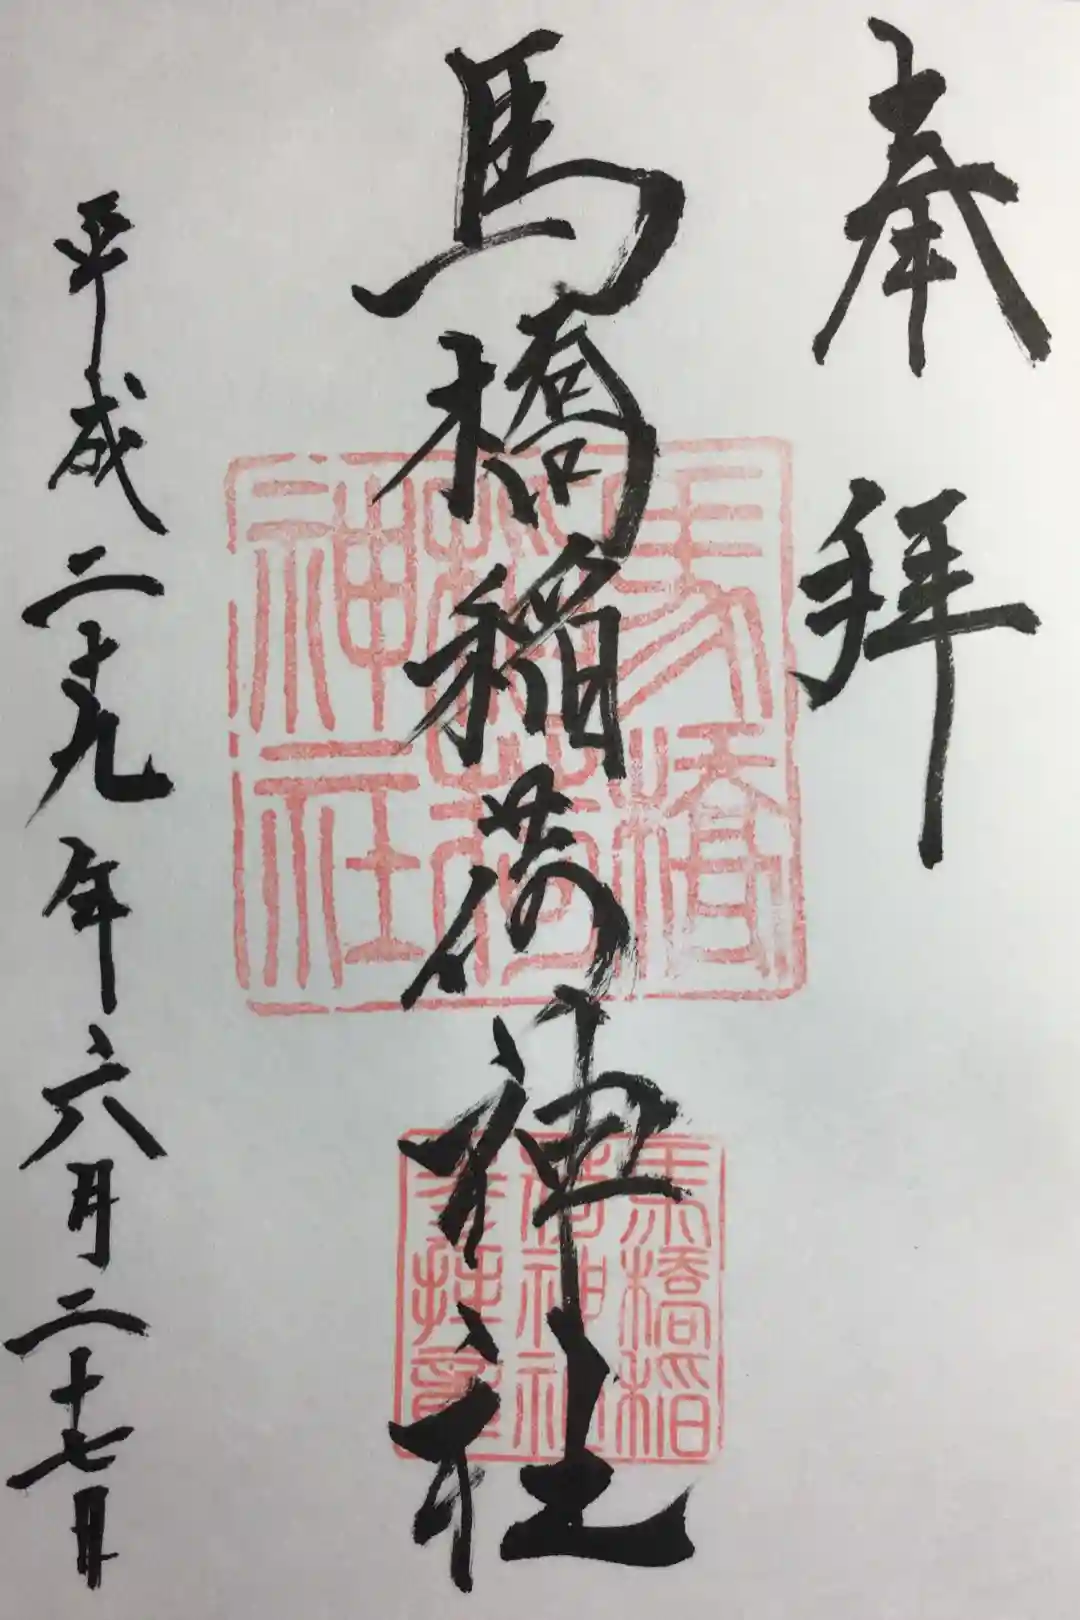 奉拝
馬橋稲荷神社
平成二十九年六月二十七日
馬橋
稲荷
神社
馬橋稲
荷神社